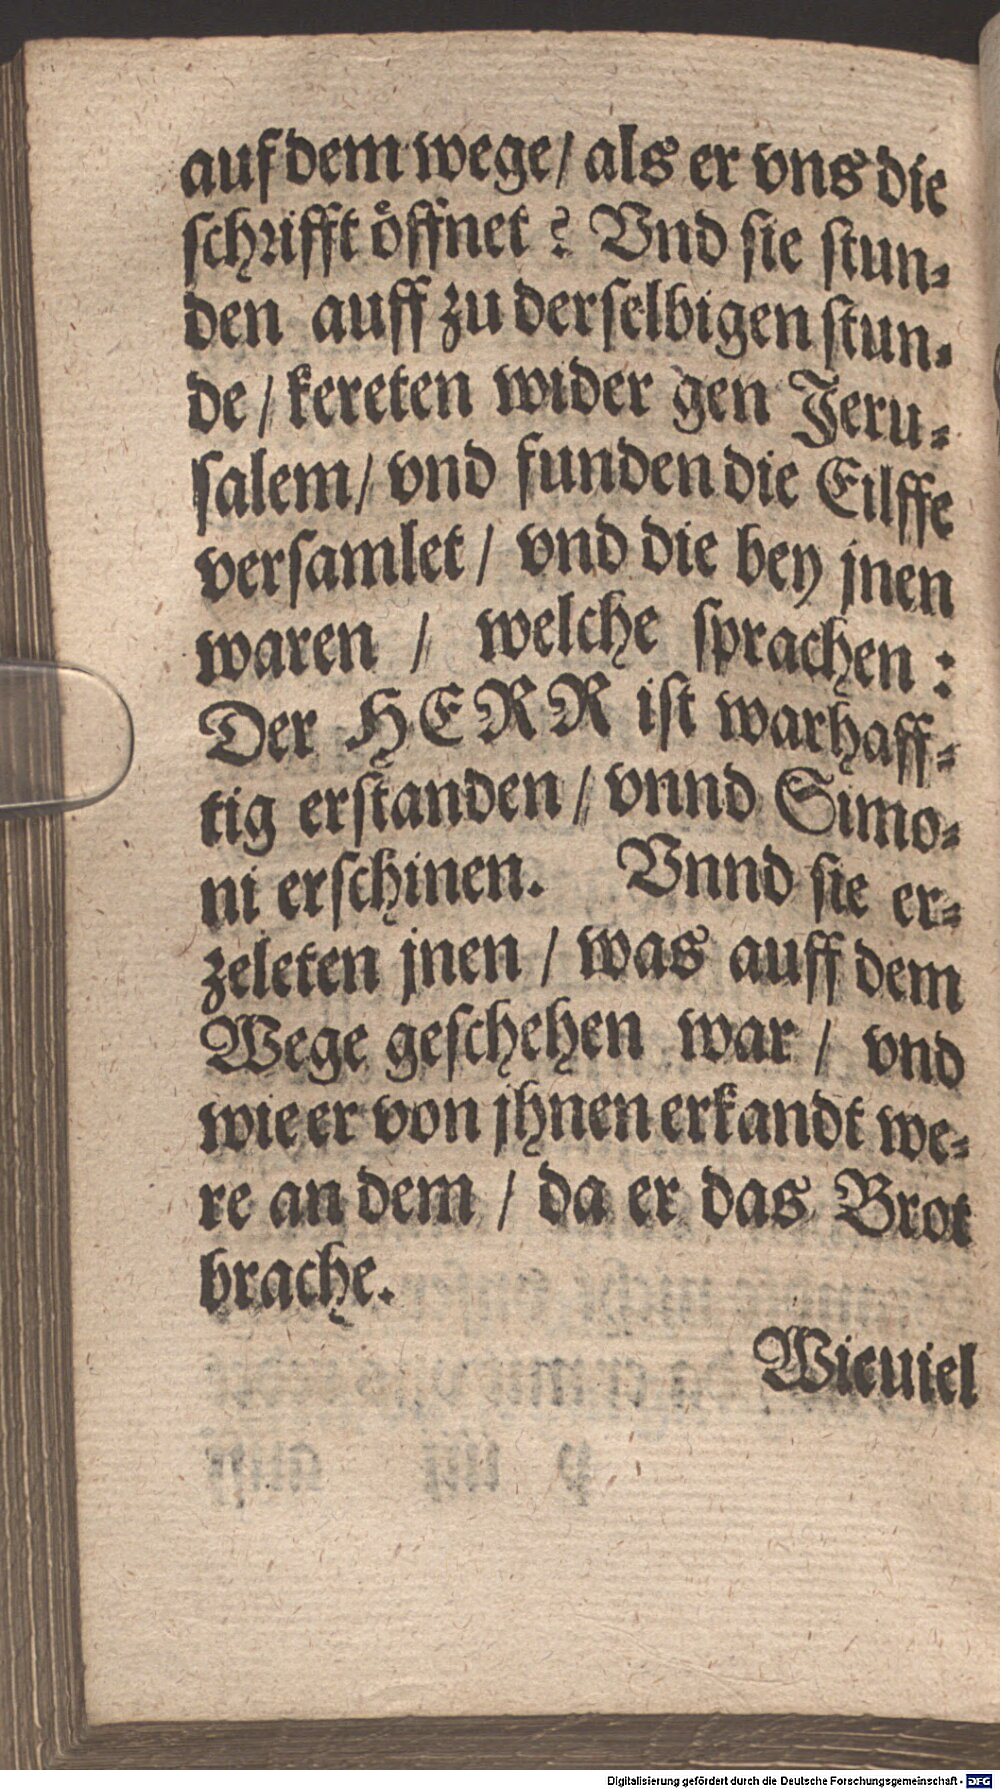 auf dem wege / als er vns die
schrifft öffnet? Vnd sie stun⸗
den auff zu derselbigen stun⸗
de / kereten wider gen Jeru⸗
salem / vnd funden die Eilffe
versamlet / vnd die bey jnen
waren / welche sprachen:
Der HERR ist warhaff⸗
tig erstanden / vnnd Simo⸗
ni erschinen. Vnnd sie er⸗
zeleten jnen / was auff dem
Wege geschehen war / vnd
wie er von jhnen erkandt we⸗
re an dem / da er das Brot
brache.
Wieuiel
Digitalisierung gefördert durch die Deutsche Forschungsgemeinschaft - DFG